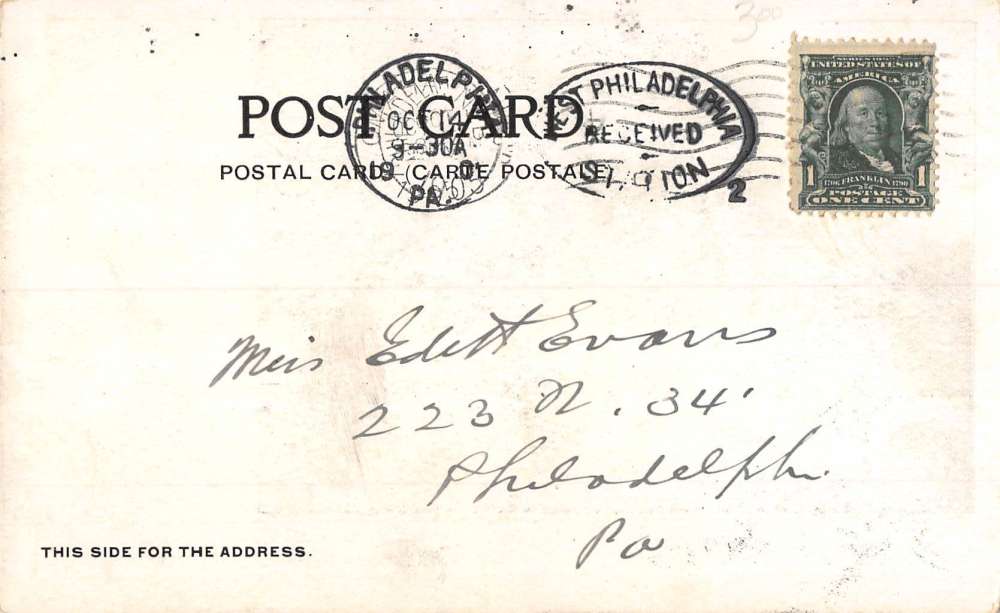 300
PHILADELPHIA
OCT 14
9-30A
19
PA.
WEST PHILADELPHIA
RECEIVED
STATION
2
SERIES 1902
UNITED STATES OF
AMERICA
1706 FRANKLIN 1790
1 POSTAGE 1
ONE CENT
POST CARD
POSTAL CARD (CARTE POSTALE)
Miss Edett Evans
223 N. 34'
Philadelph
Pa
THIS SIDE FOR THE ADDRESS.